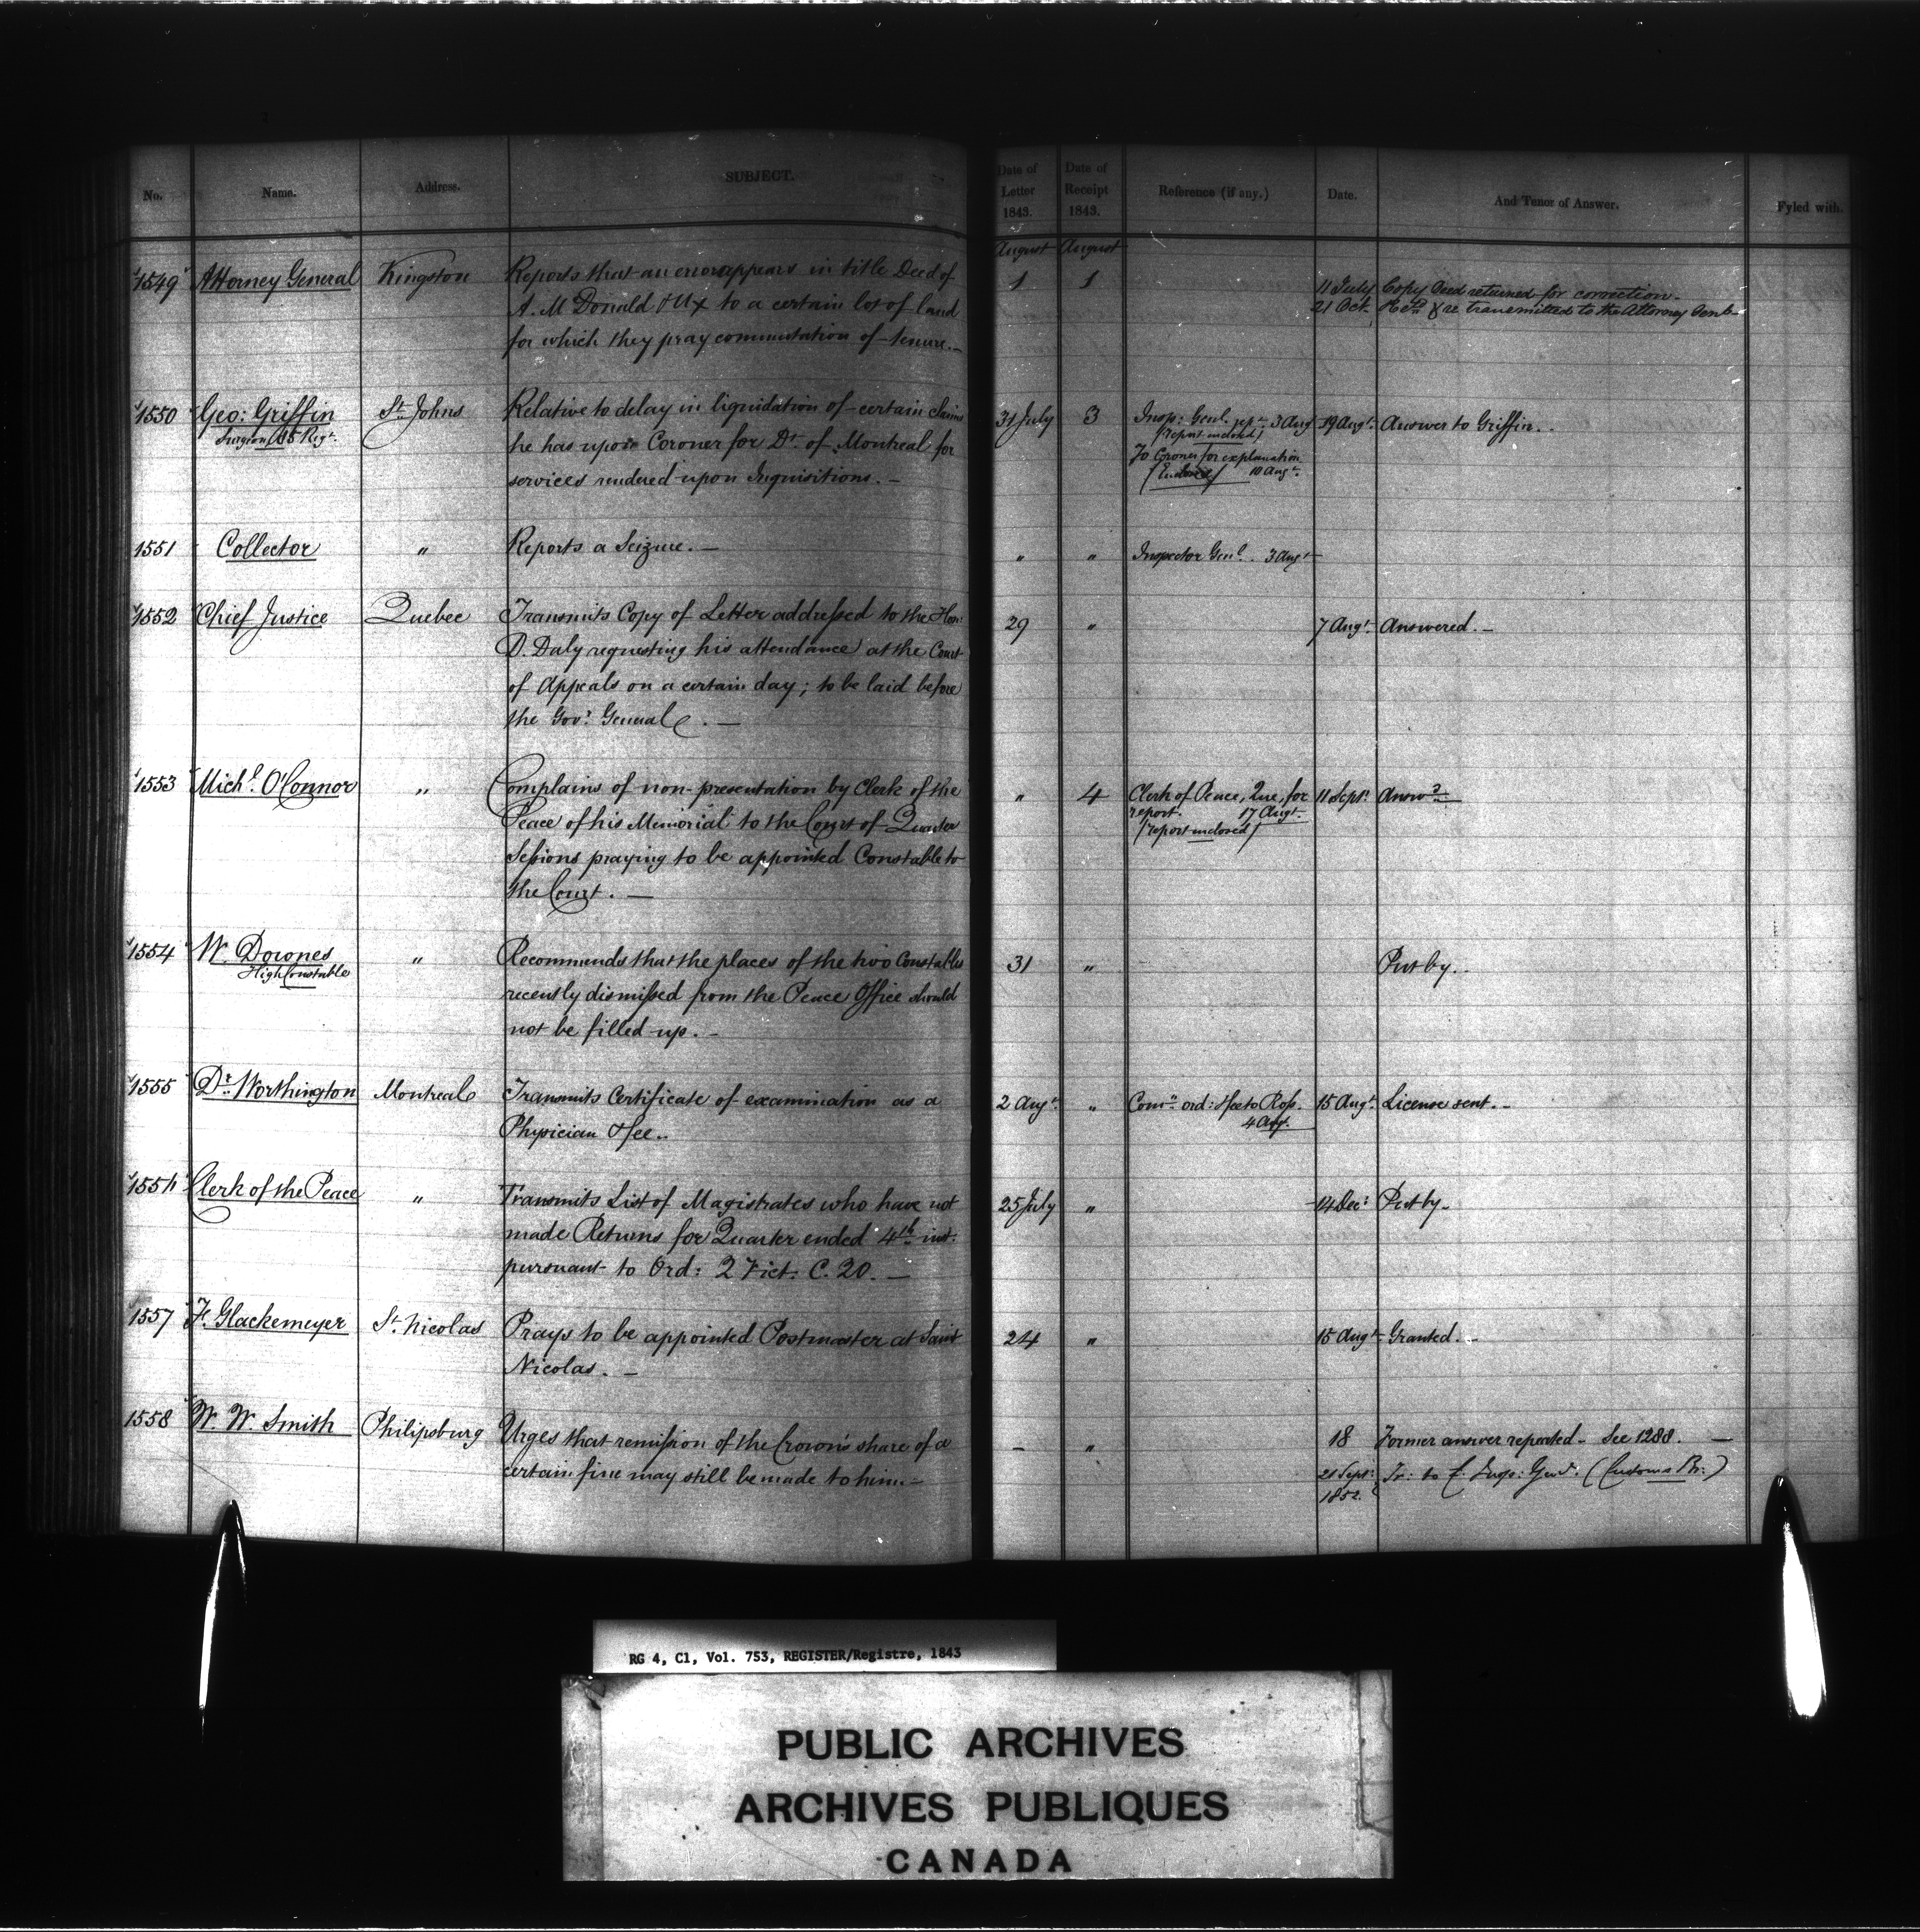 No. Name. Address. SUBJECT.
Date of Letter 1843. Date of Receipt 1843. Reference (if any.) Date. And Tenor of Answer. Fyled with.
August August
1549 Attorney General Kingston Reports that an error appears in title Deed of 1 1 11 July Copy Deed returned for correction.
A. McDonald & Ux to a certain lot of land 21 Oct. & re transmitted to the Attorney Genl.
for which they pray commutation of tenure. —
1550 Geo: Griffin St Johns Relative to delay in liquidation of certain claims 31 July 3 Insp: Genl. rep. 3 Aug 19 Augt. Answer to Griffin. -
Surgeon 85 Regt. he has upon Coroner for Dt. of Montreal for (report inclosed)
services rendered upon Inquisitions. — To Coroner for explanation
(Enclosed) 10 Augt.
1551 Collector " Reports a Seizure. — " " Inspector Genl. . 3 Augt
1552 Chief Justice Quebec Transmits Copy of Letter addressed to the Hon: 29 " 7 Augt. Answered. —
D. Daly requesting his attendance at the Court
of Appeals on a certain day; to be laid before
the Govr. General. —
1553 Michl. O'Connor " Complains of non-presentation by Clerk of the " 4 Clerk of Peace, Que, for 11 Sept. Answd.
Peace of his Memorial to the Court of Quarter report. 17 Augt.
Sessions praying to be appointed Constable to (report inclosed)
the Court. —
1554 W. Downes " Recommends that the places of the two Constables 31 " Put by.
High Constable recently dismissed from the Peace Office should
not be filled up. -
1555 Dr. Worthington Montreal Transmits Certificate of examination as a 2 Augt. " Comn. ord: & fee to Ross. 15 Augt. License sent. -
Physician & fee. . 4 Aug.
1556 Clerk of the Peace " Transmits List of Magistrates who have not 25 July " 14 Dec: Put by -
made Returns for Quarter ended 4th inst.
pursuant to Ord: 2 Vict. C. 20. —
1557 F. Glackemeyer St. Nicolas Prays to be appointed Postmaster at Saint 24 " 15 Augt Granted. -
Nicolas. —
1558 W. W. Smith Philipsburg Urges that remission of the Crown's share of a - " 18 Former answer repeated - See 1288. —
certain fine may still be made to him. — 21 Sept. Tr: to Insp: Genl. (Customs Br:)
1852.
RG 4, C1, Vol. 753, REGISTER/Registre, 1843
PUBLIC ARCHIVES
ARCHIVES PUBLIQUES
CANADA